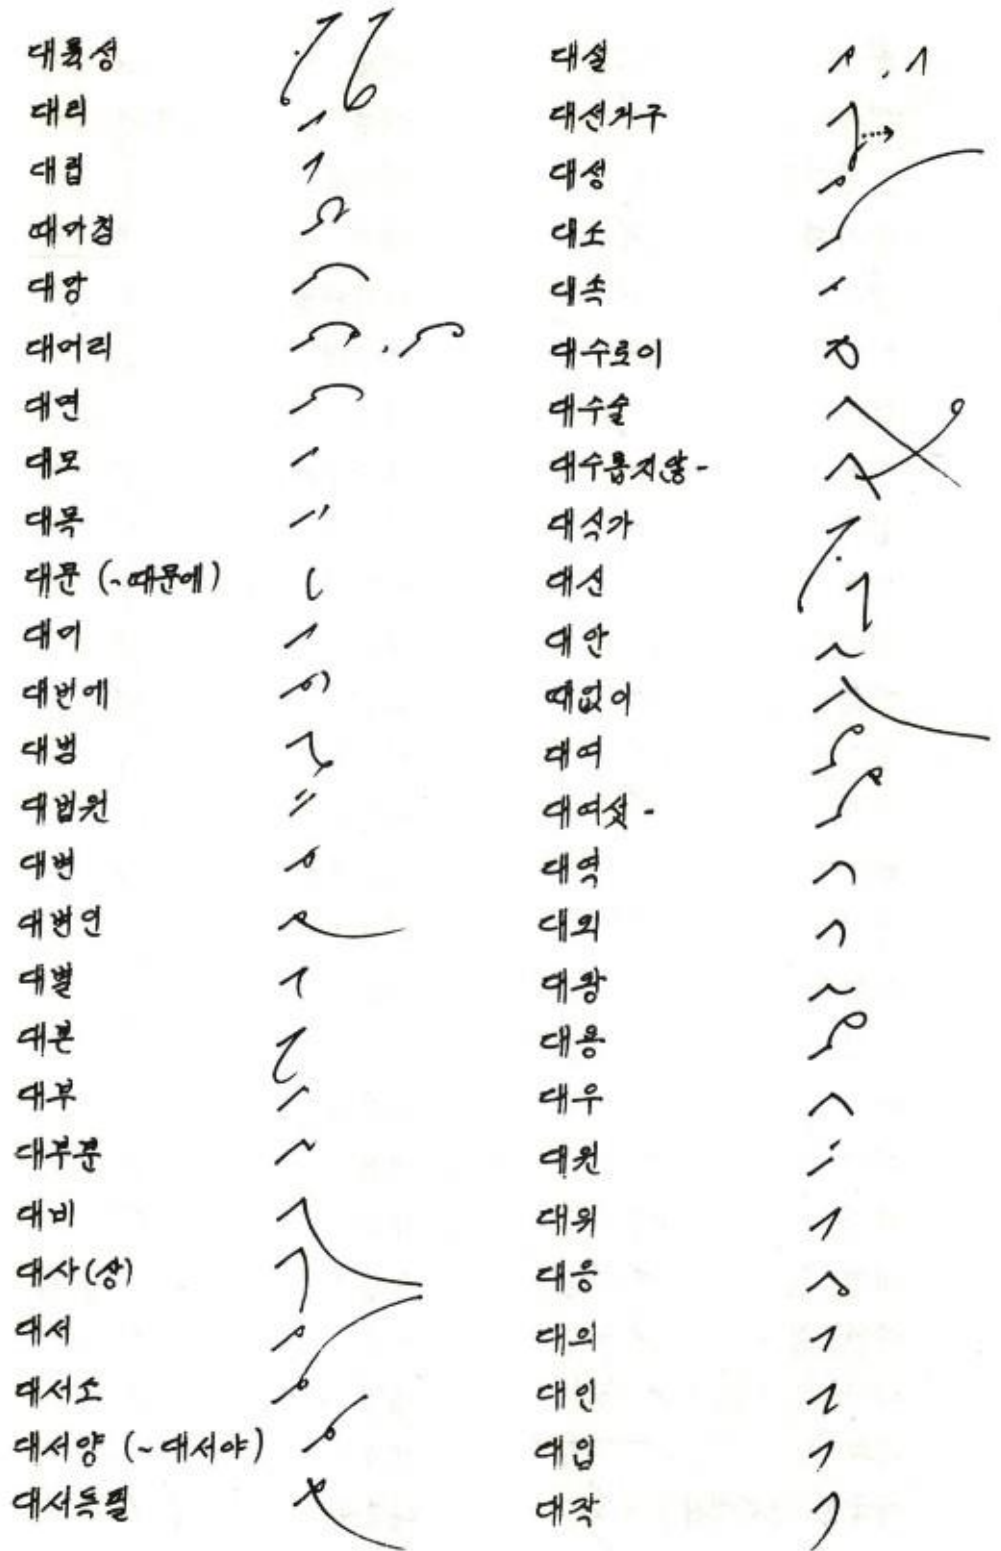 대륙성
대리
대립
때아침
대앙
대어리
대면
대모
대목
대문 (~때문에)
대어
대번에
대범
대법원
대변
대변인
대별
대본
대부
대부분
대비
대사(상)
대서
대서소
대서양 (~대서야)
대서특필
대설
대선거구
대성
대소
대속
대수로이
대수술
대수롭지않-
대식가
대신
대안
때없이
대여
대여섯-
대역
대외
대왕
대용
대우
대원
대위
대응
대의
대인
대입
대작